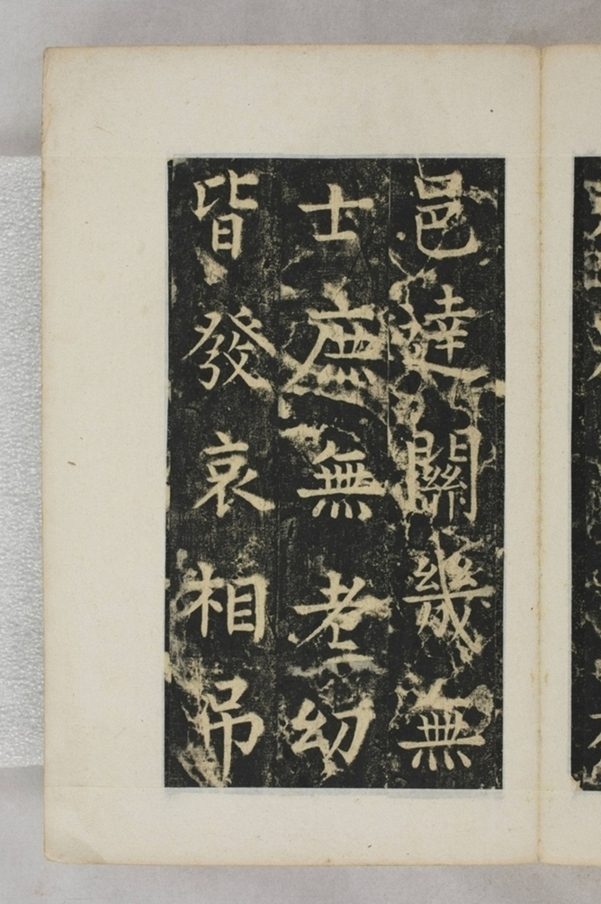 邑達關畿無
士庶無老幼
皆發哀相吊